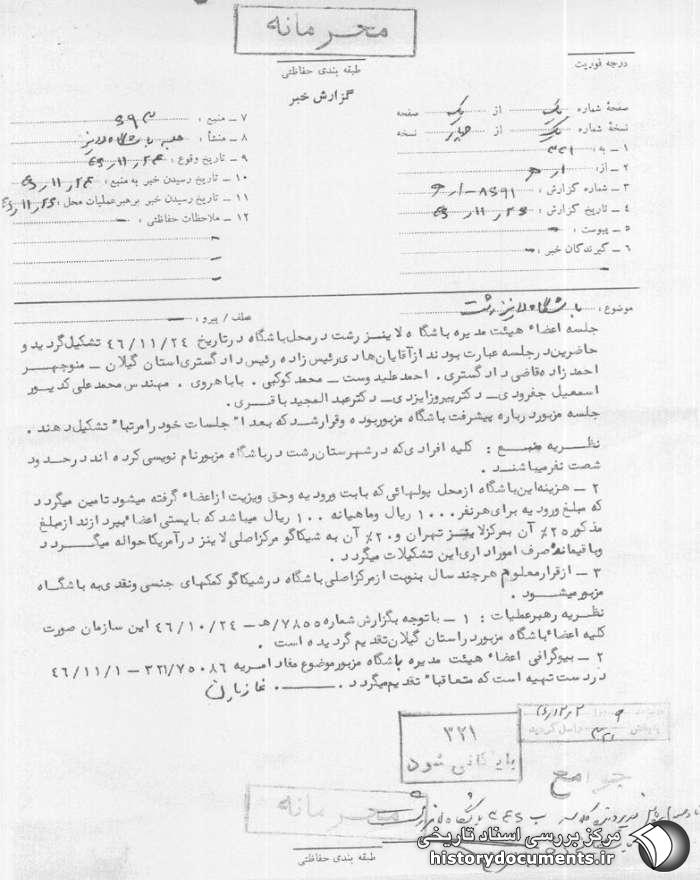 محرمانه
طبقه بندی حفاظتی
درجه فوریت
گزارش خبر
صفحهٔ شماره یک از یک صفحه
نسخهٔ شماره یک از چهار نسخه
۱ ــ به : ۳۲۱
۲ ــ از :
۳ ــ شماره گزارش :
۴ ــ تاریخ گزارش :
۵ ــ پیوست : ــ
۶ ــ گیرندگان خبر : ــ
۷ ــ منبع :
۸ ــ منشأ :
۹ ــ تاریخ وقوع : ۴۶/۱۱/۲۴
۱۰ ــ تاریخ رسیدن خبر به منبع : ۴۶/۱۱/۲۴
۱۱ ــ تاریخ رسیدن خبر برهبر عملیات محل :
۱۲ ــ ملاحظات حفاظتی : ــ
موضوع : باشگاه لاینز رشت
عطف / پیرو : ــ
جلسه اعضاء هیئت مدیره باشگاه لاینز رشت در محل باشگاه در تاریخ ۴۶/۱۱/۲۴ تشکیل گردید و
حاضرین در جلسه عبارت بودند از آقایان هادی رئیس زاده رئیس دادگستری استان گیلان ــ منوچهر
احمد زاده قاضی دادگستری . احمد علیدوست ــ محمد کوکبی . بابا هروی . مهندس محمد علی کدیور
اسمعیل جفرودی ــ دکتر پیروز ایزدی ــ دکتر عبدالمجید باقری .
جلسه مزبور درباره پیشرفت باشگاه مزبور بوده و قرار شد که بعداً جلسات خود را مرتباً تشکیل دهند .
نظریه منبع : کلیه افرادی که در شهرستان رشت در باشگاه مزبور نام نویسی کرده اند در حدود
شصت نفر میباشند .
۲ ــ هزینه این باشگاه از محل پولهائی که بابت ورودیه وحق ویزیت از اعضاء گرفته میشود تامین میگردد
که مبلغ ورودیه برای هر نفر ۱۰۰۰ ریال و ماهیانه ۱۰۰ ریال میباشد که بایستی اعضاء بپردازند از مبلغ
مذکور ۲۵٪ آن بمرکز لاینز تهران و ۲۰٪ آن به شیکاگو مرکز اصلی لاینز در آمریکا حواله میگردد
و باقیمانده صرف امور اداری این تشکیلات میگردد .
۳ ــ از قرار معلوم هر چند سال بنوبت از مرکز اصلی باشگاه در شیکاگو کمکهای جنسی و نقدی به باشگاه
مزبور میشود .
نظریه رهبر عملیات : ۱ ــ با توجه بگزارش شماره ۷۸۵۵/ هـ ــ ۴۶/۱۰/۲۴ این سازمان صورت
کلیه اعضاء باشگاه مزبور در استان گیلان تقدیم گردیده است .
۲ ــ بیوگرافی اعضاء هیئت مدیره باشگاه مزبور موضوع مفاد امریه ۳۲۱/۷۵۰۸۶ ــ ۴۶/۱۱/۱
در دست تهیه است که متعاقباً تقدیم میگردد .
۳۲۱
بایگانی شود
جوامع
محرمانه
طبقه بندی حفاظتی
مرکز بررسی اسناد تاریخی
historydocuments.ir